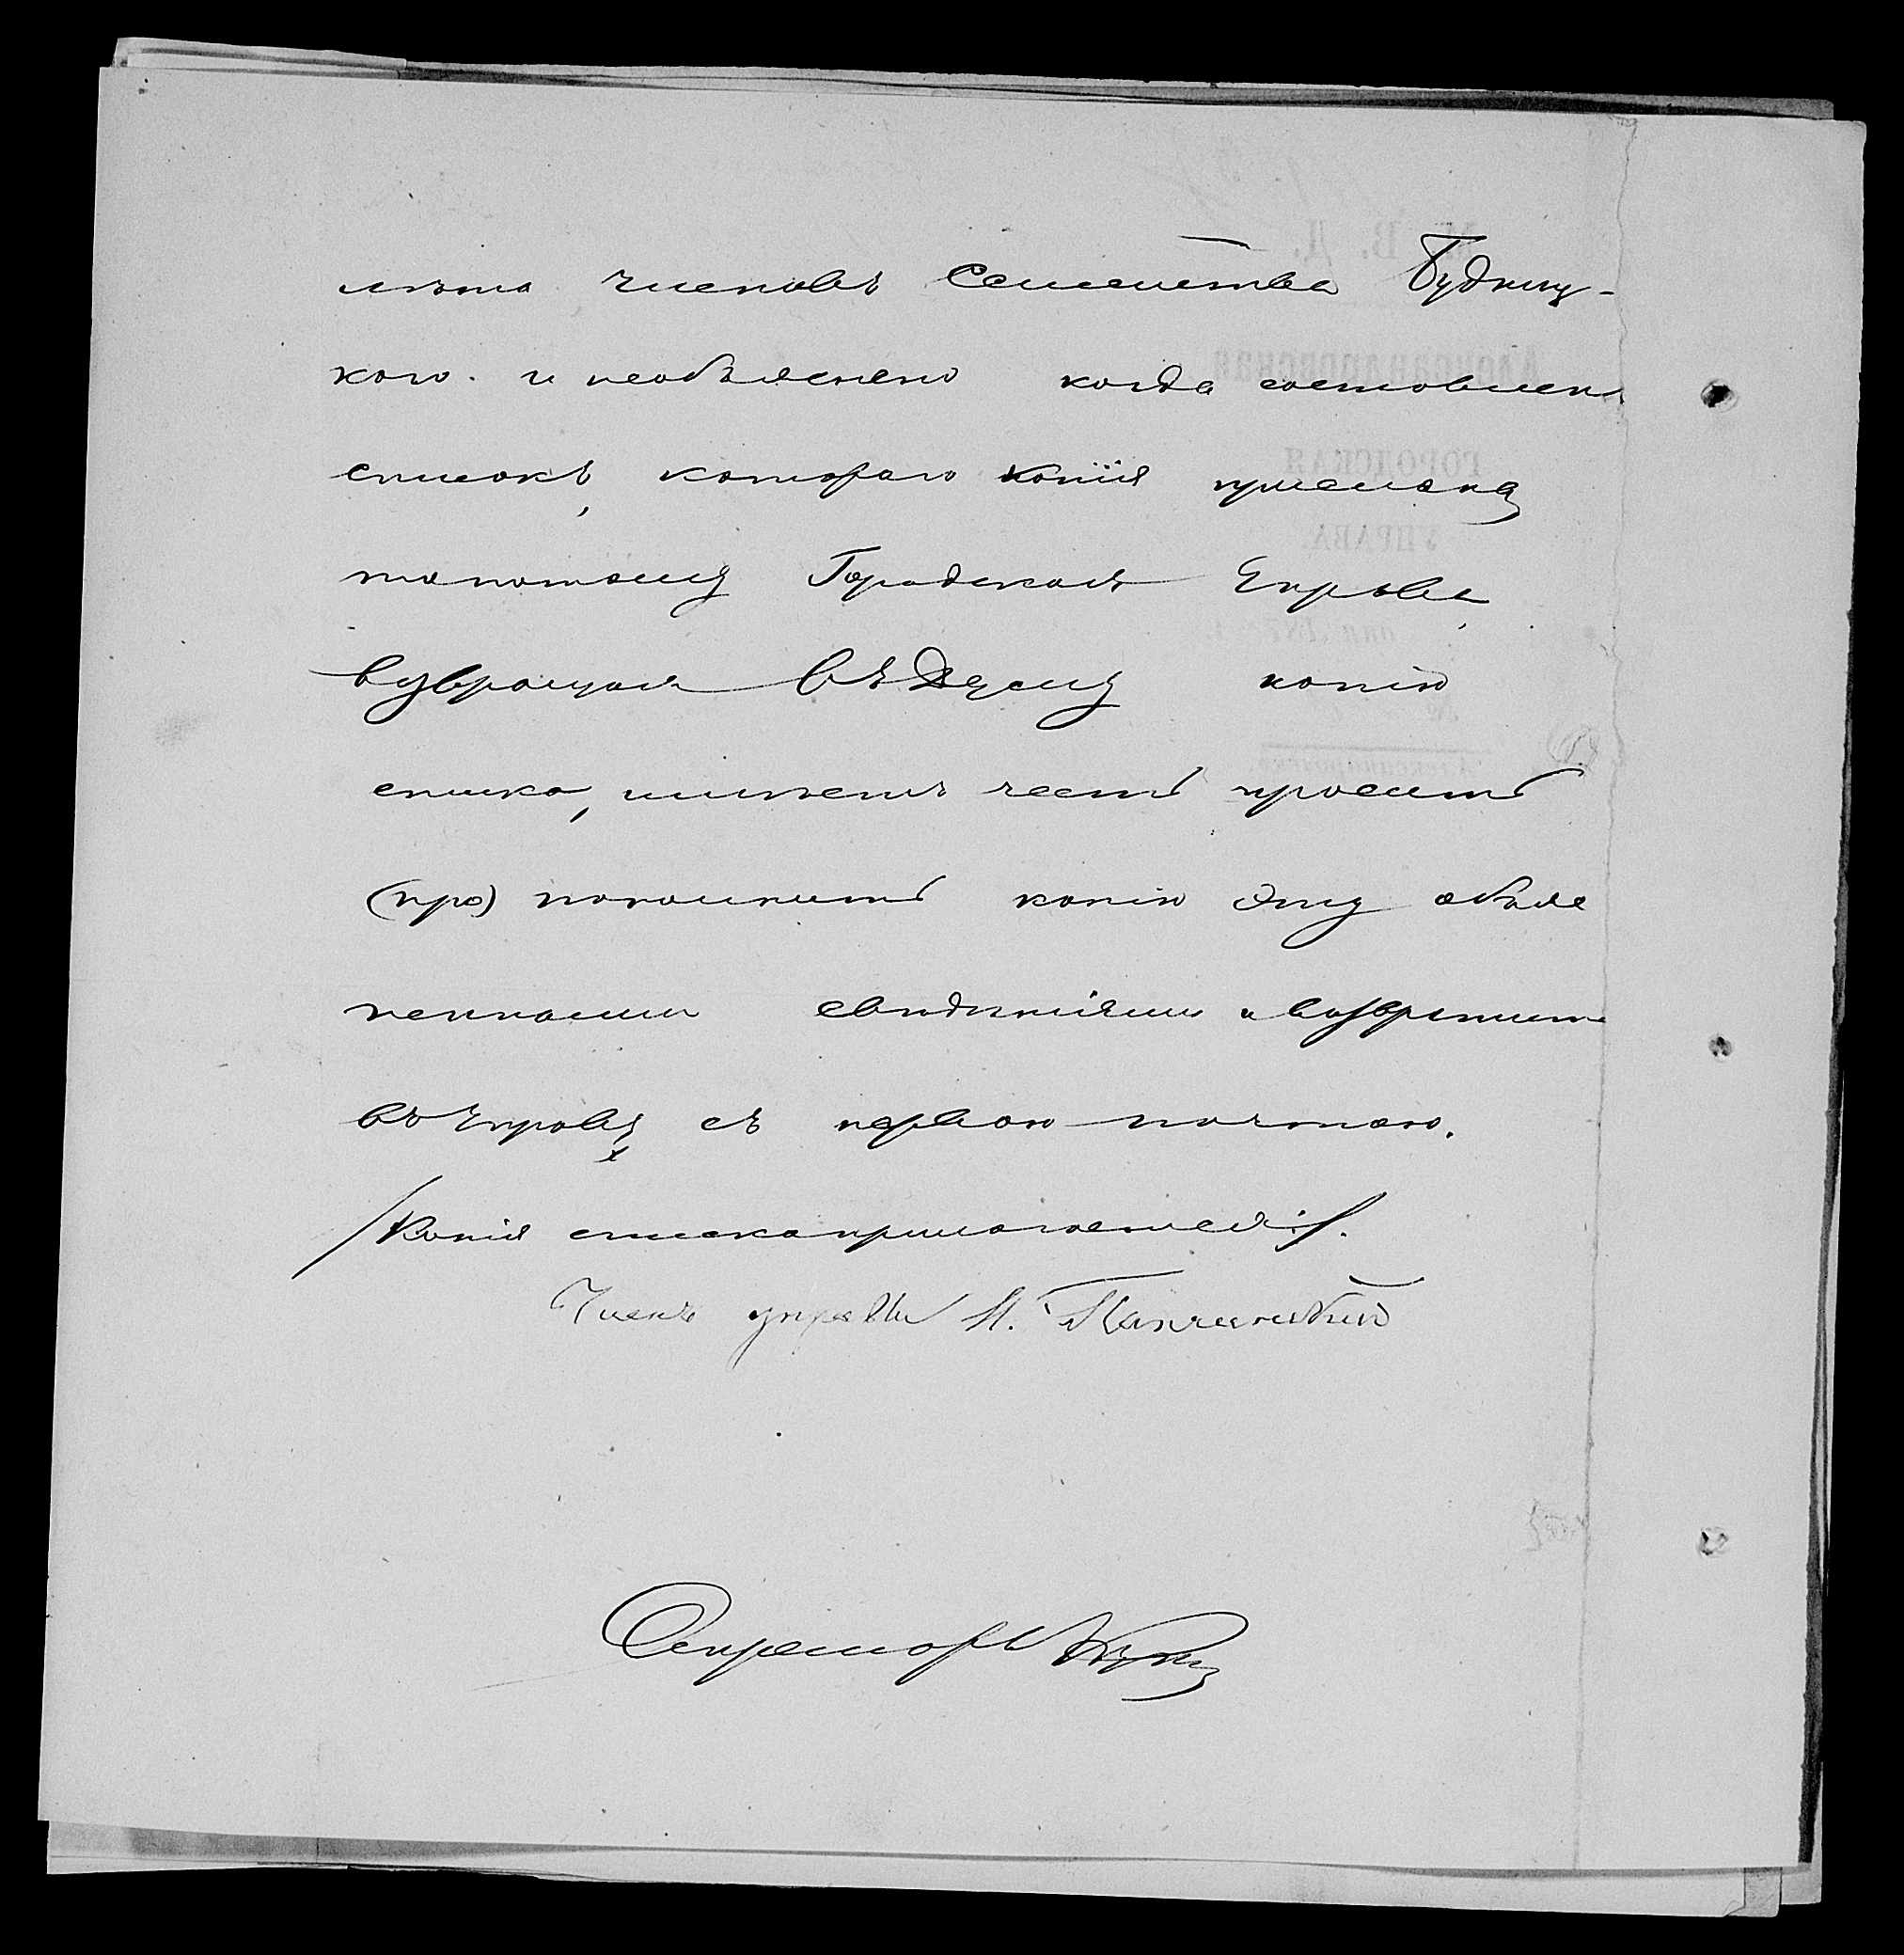 лѣта членовъ Семейства Будниц-
кого. и необъяснено когда составленъ
списокъ, котораго копія прислана
тапотому Городская Управа,
возвращая въ Думу копію
списка, имѣетъ честь просить
(про) пополнить копію эту объяс
неными свѣдѣніями и возвратить
въ Управу съ первою почтою.
/Копія списка прилагается/.
Членъ управы
Секретарь
М. В. Д.
Александровская
ГОРОДСКАЯ
УПРАВА.